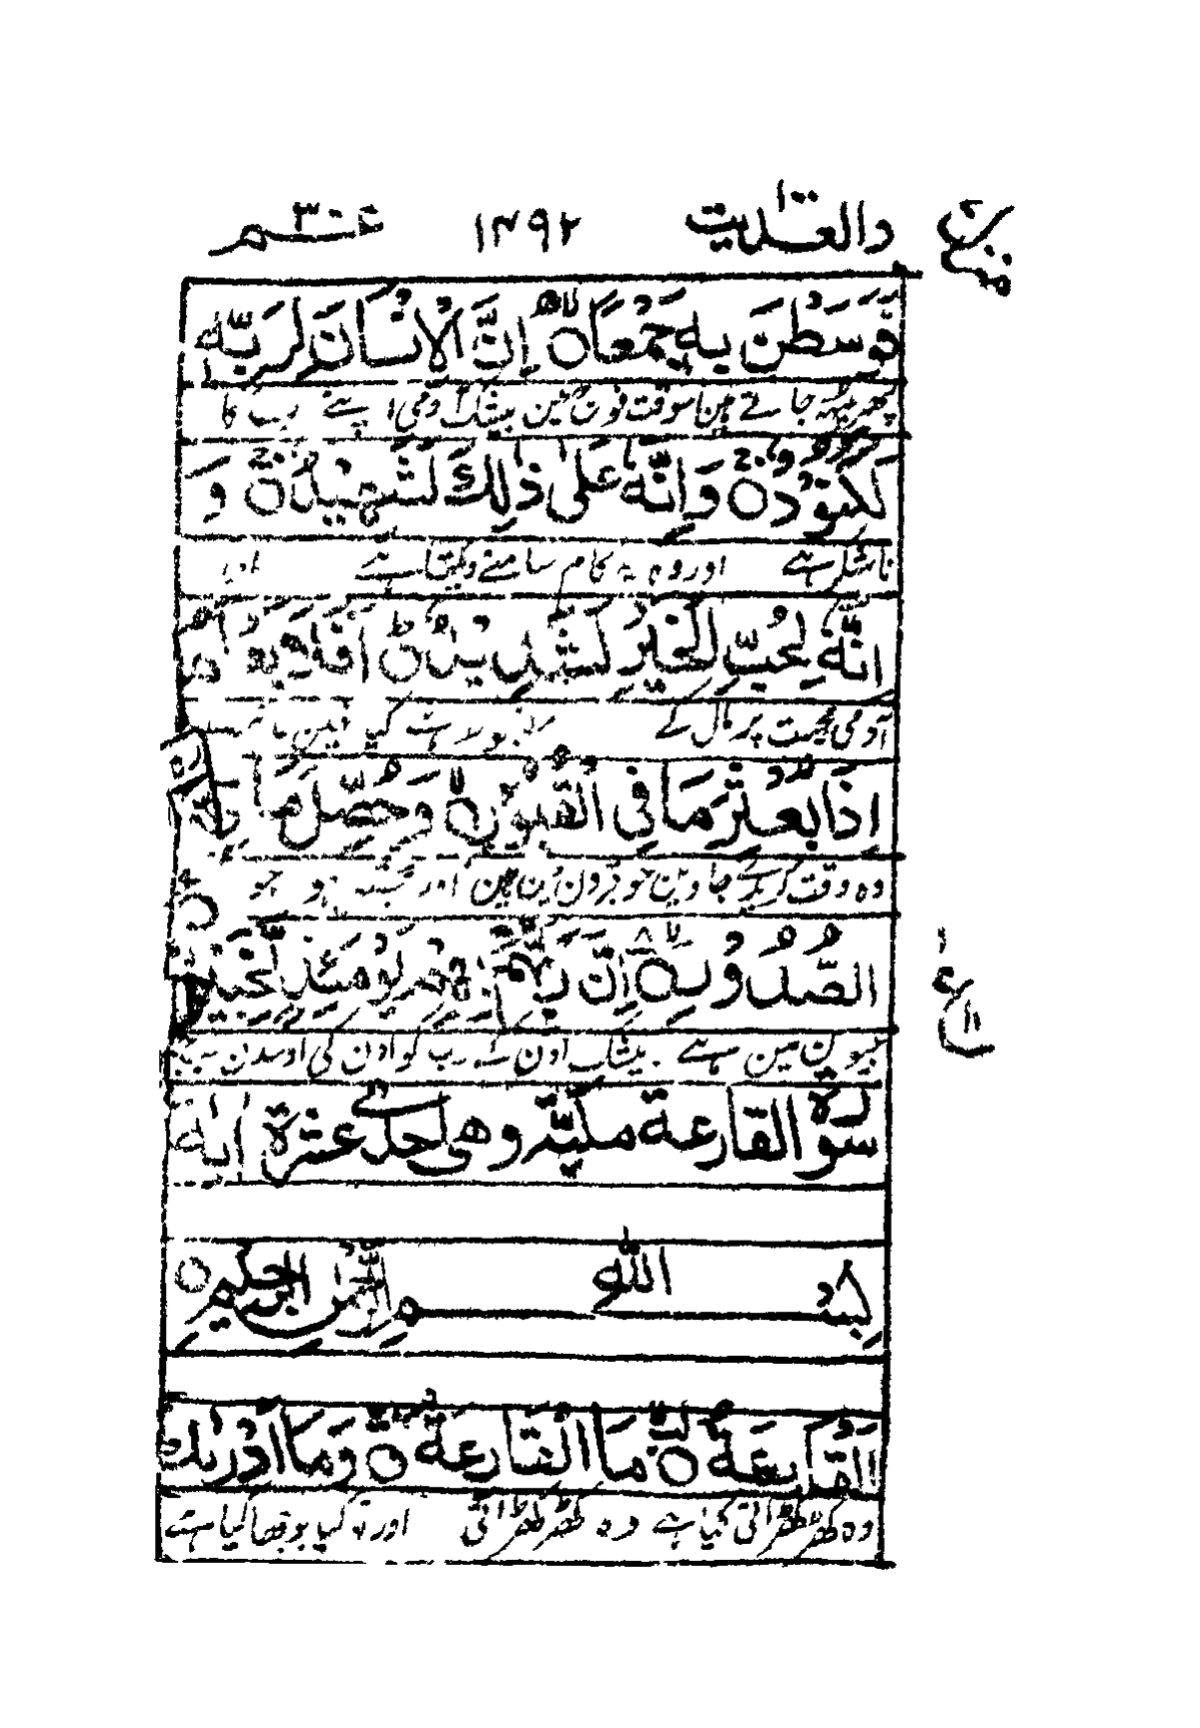 منزل ٧
والعٰديٰت ١٠٠ ١٤٩٢ عم ٣٠
فَوَسَطْنَ بِهٖ جَمْعًا ۝ إِنَّ الْإِنْسَانَ لِرَبِّهٖ
جاتے ہین اسوقت فوج مین بیشک آدمی اپنے رب کا
لَكَنُوْدٌ ۝ وَإِنَّهٗ عَلٰى ذٰلِكَ لَشَهِيْدٌ ۝ وَ
ناشکر ہے اور وہ یہ کام سامنے دیکھتا ہے اور
اِنَّهٗ لِحُبِّ الْخَيْرِ لَشَدِيْدٌ ۝ اَفَلَا يَعْلَمُ
آدمی محبت پر مال کے کیا نہین
اِذَا بُعْثِرَ مَا فِى الْقُبُوْرِ ۝ وَحُصِّلَ مَا فِى
وہ وقت کہ کریدے جاوین جو قبرون مین ہین اور جو
الصُّدُوْرِ ۝ اِنَّ رَبَّهُمْ بِهِمْ يَوْمَئِذٍ لَّخَبِيْرٌ
مین ہے بیشک اون کے رب کو اون کی اوسدن سب
ع ١١
سورة القارعة مكيّة وهى احدى عشرة اية
بِسْمِ اللهِ الرَّحْمٰنِ الرَّحِيْمِ ۝
اَلْقَارِعَةُ ۝ مَا الْقَارِعَةُ ۝ وَمَا اَدْرٰىكَ
وہ کھڑکھڑاتی کیا ہے وہ کھڑکھڑاتی اور تو کیا بوجھا کیا ہے